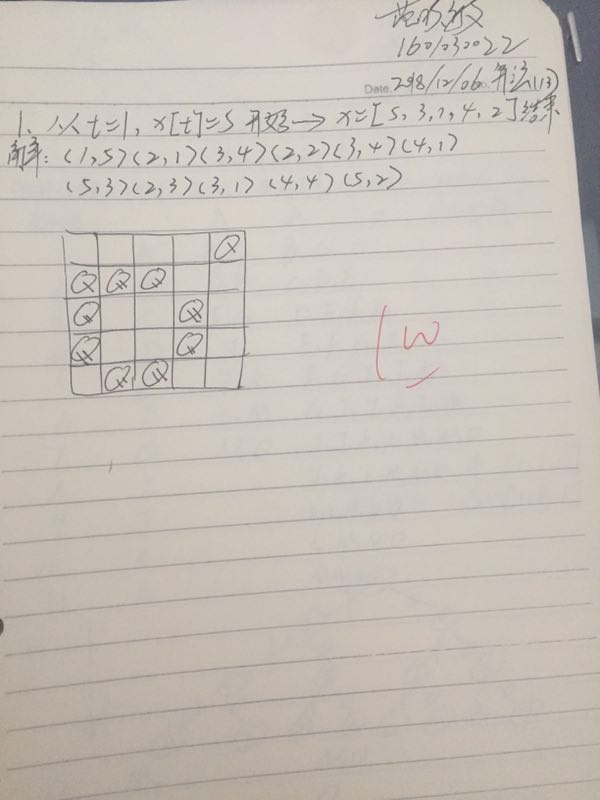 160103022
Date. 298/12/06 No. 算法(13)
1、从t=1, x[t]=5 开始→x=[5,3,1,4,2]结束
(1,5)(2,1)(3,4)(2,2)(3,4)(4,1)
(5,3)(2,3)(3,1)(4,4)(5,2)
Q
Q Q Q
Q Q
Q Q
Q Q